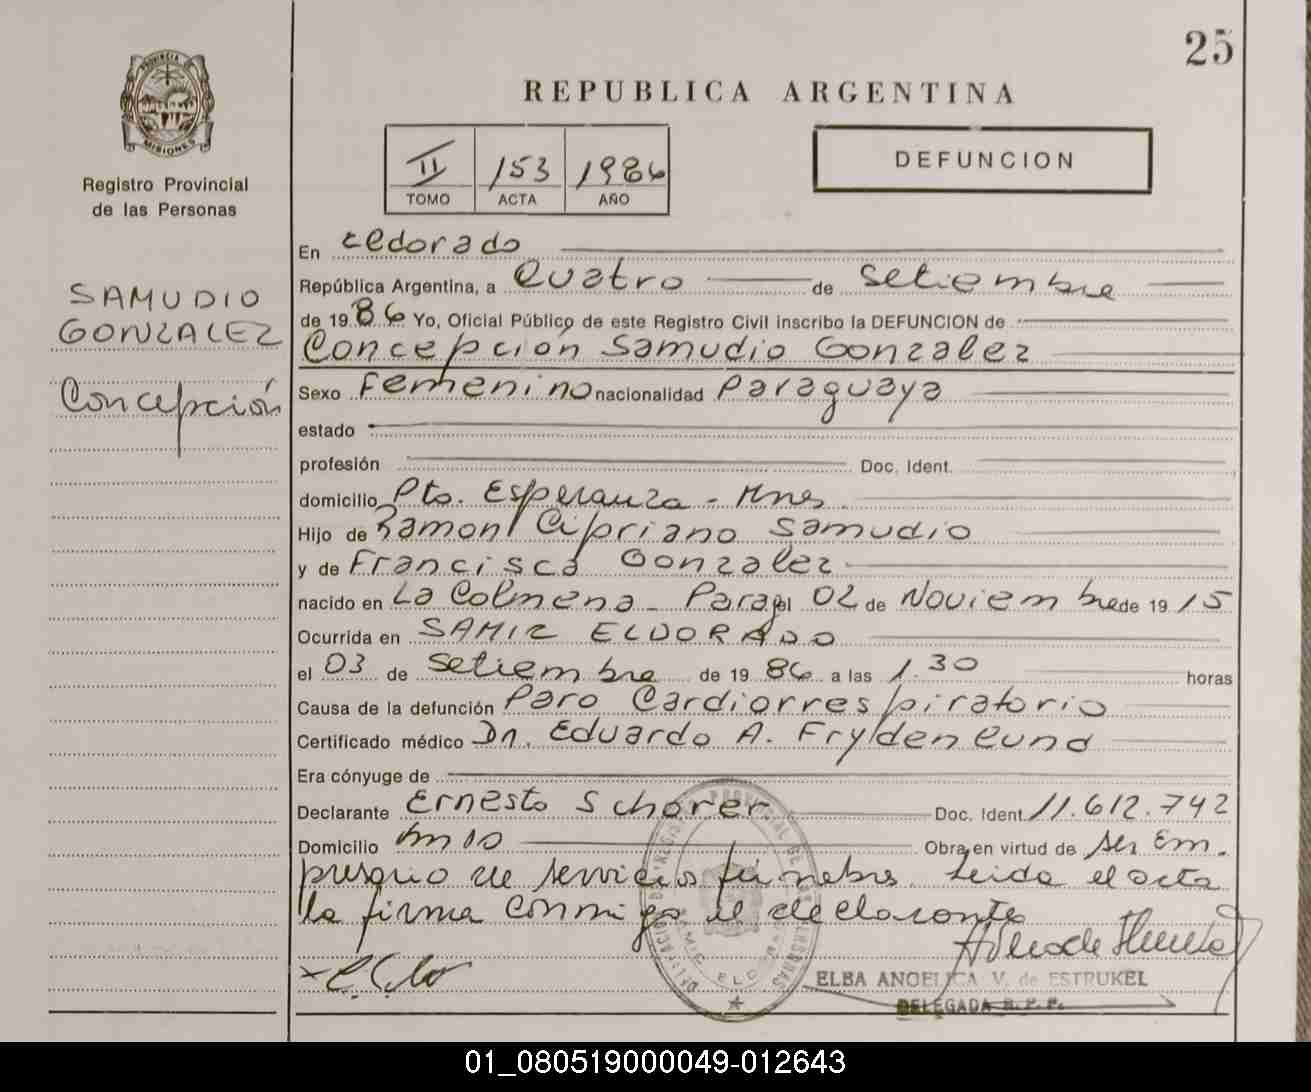 25
REPUBLICA ARGENTINA
PROVINCIA DE
MISIONES
Registro Provincial
de las Personas
II 153 1986
TOMO ACTA AÑO
DEFUNCION
SAMUDIO
GONZALEZ
Concepción
En Eldorado
República Argentina, a Cuatro de Setiembre
de 1986 Yo, Oficial Público de este Registro Civil inscribo la DEFUNCION de
Concepción Samudio Gonzalez
Sexo Femenino nacionalidad Paraguaya
estado
profesión Doc. Ident.
domicilio Pto. Esperanza - Mnes.
Hijo de Ramon Cipriano Samudio
y de Francisca Gonzalez
nacido en La Colmena - Parag. el 02 de Noviembre de 1915
Ocurrida en SAMIC ELDORADO
el 03 de Setiembre de 1986 a las 1.30 horas
Causa de la defunción Paro Cardiorrespiratorio
Certificado médico Dr. Eduardo A. Frydenlund
Era cónyuge de
Declarante Ernesto Schorer Doc. Ident. 11.612.742
Domicilio Km 10 Obra en virtud de ser em-
presario de servicios fúnebres. Leida el acta
la firma conmigo el declarante
ELBA ANGELICA V. de ESTRUKEL
DELEGADA R. P. P.
01_080519000049-012643